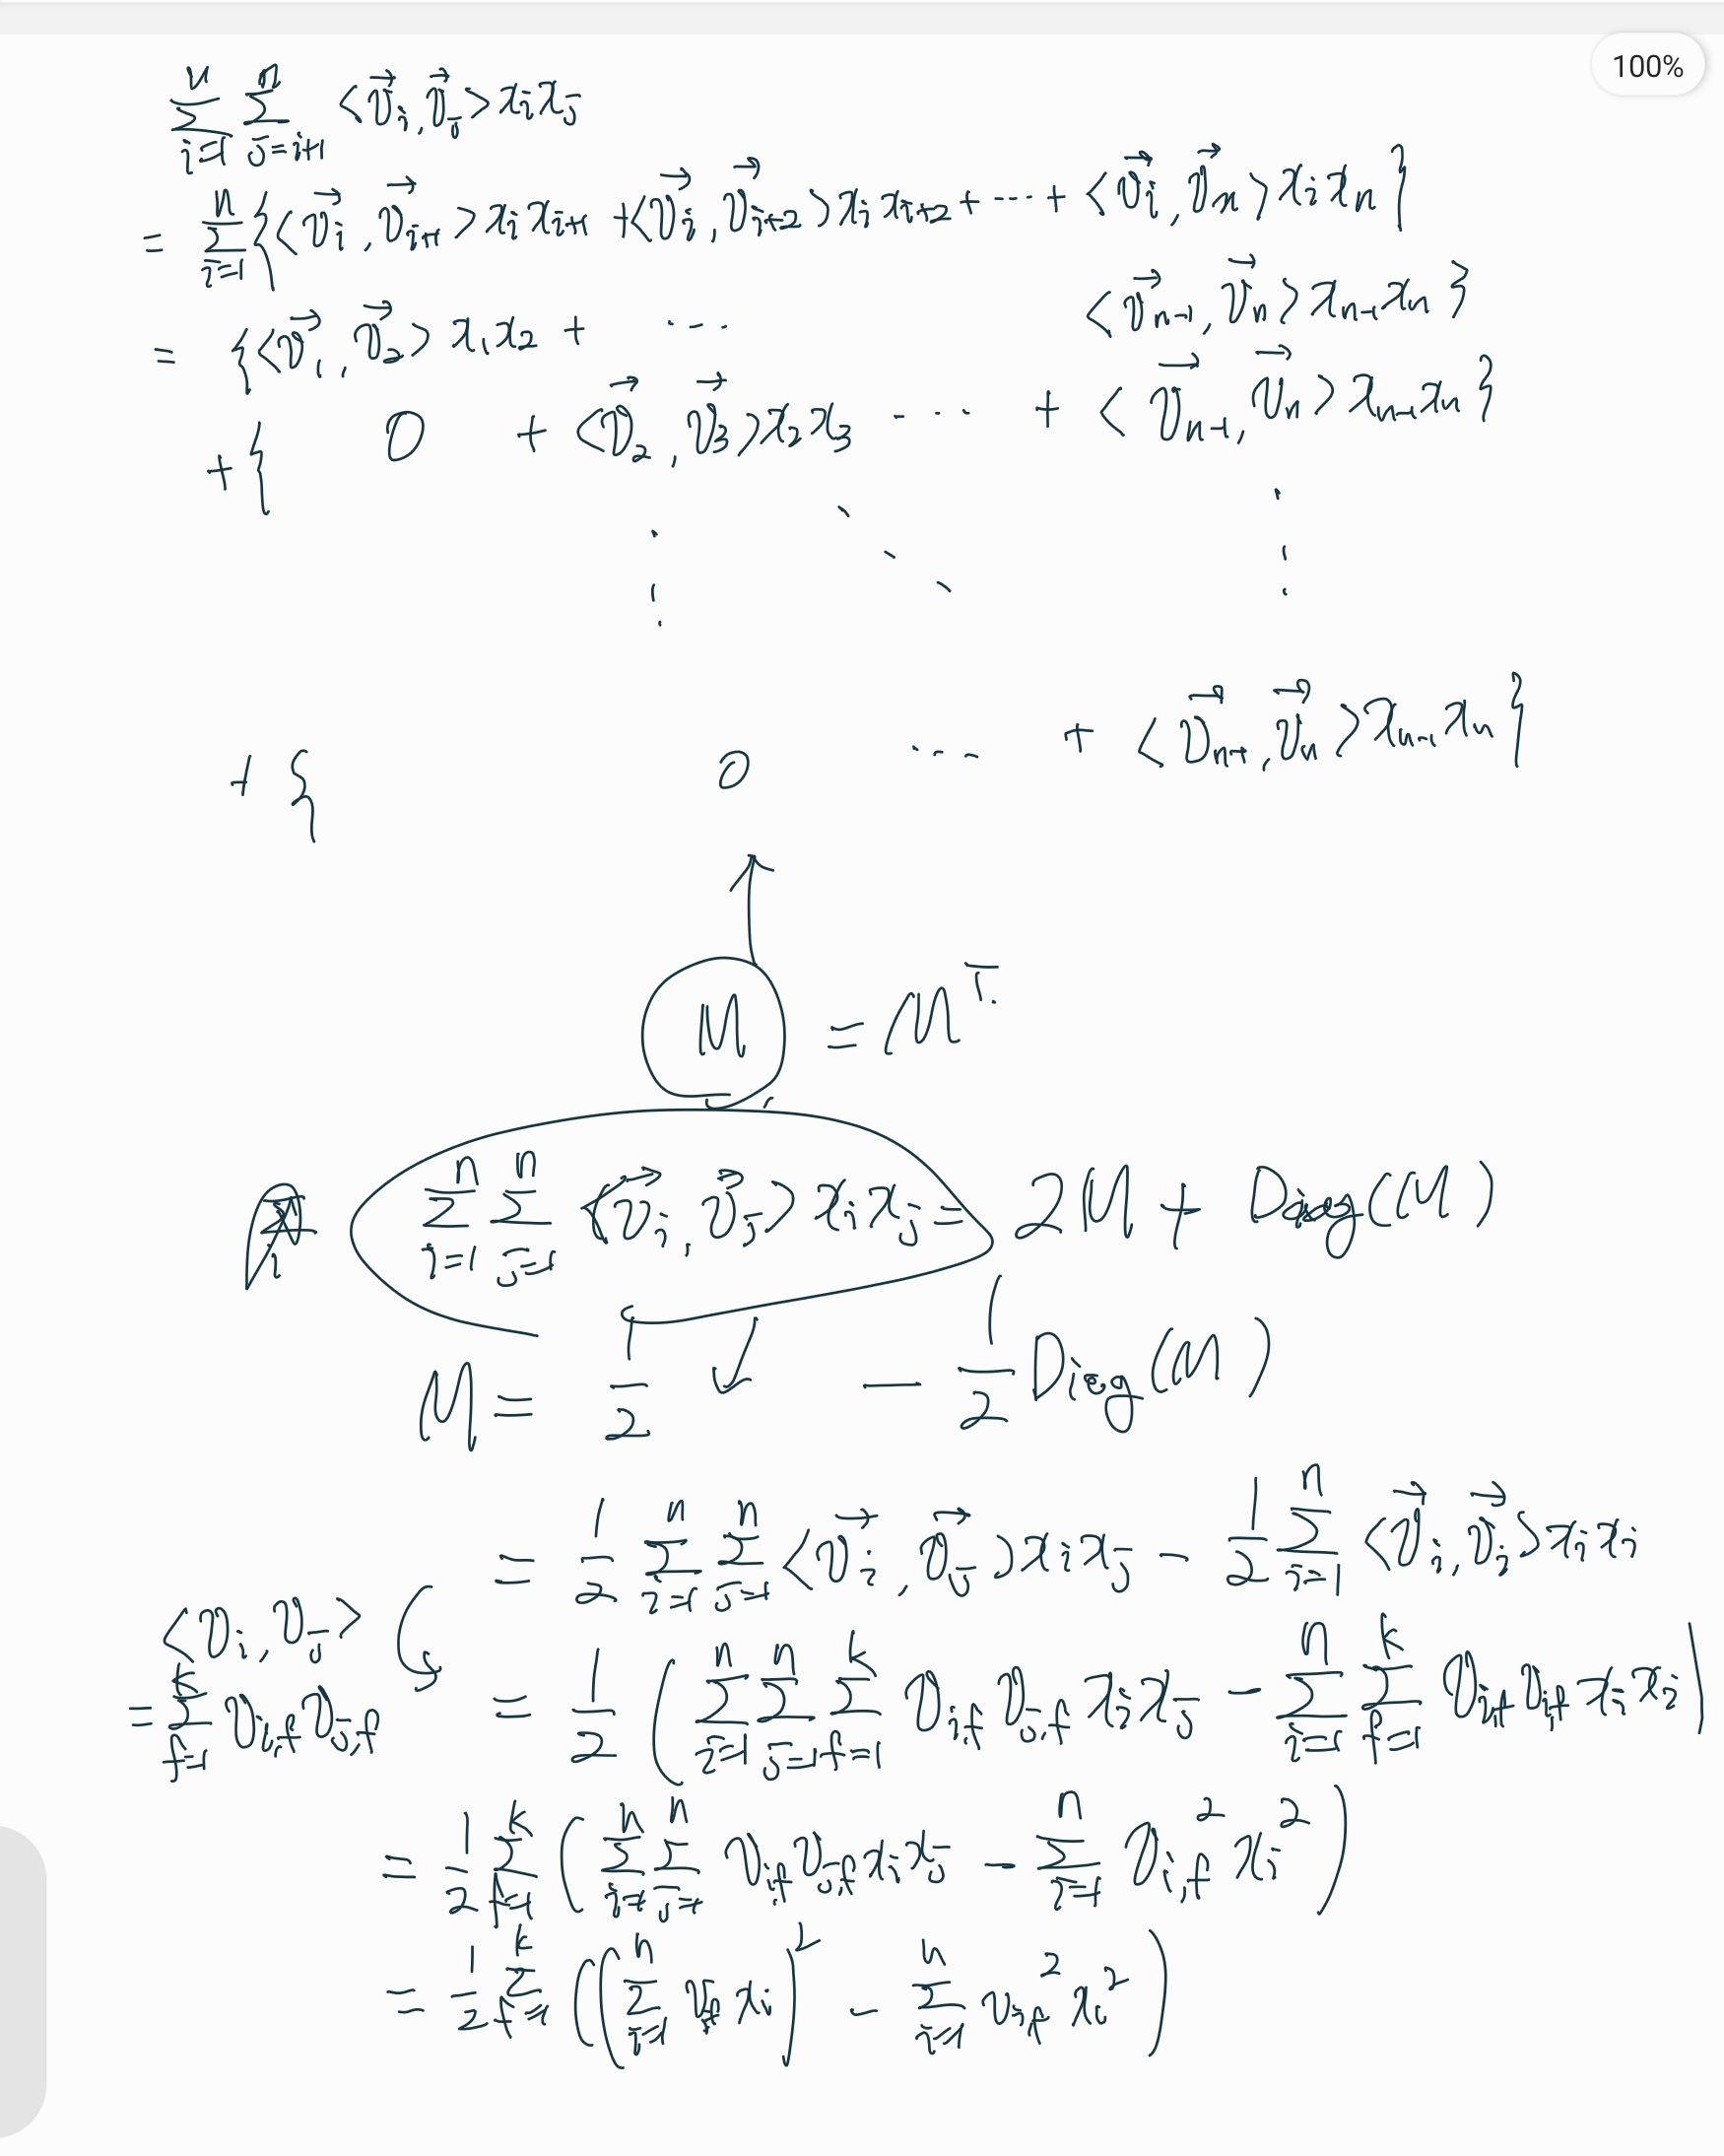 100%
∑_{i=1}^{n} ∑_{j=i+1}^{n} <v⃗_i, v⃗_j> x_i x_j
= ∑_{i=1}^{n} {<v⃗_i, v⃗_{i+1}> x_i x_{i+1} + <v⃗_i, v⃗_{i+2}> x_i x_{i+2} + ⋯ + <v⃗_i, v⃗_n> x_i x_n}
= {<v⃗_1, v⃗_2> x_1 x_2 + ⋯ <v⃗_{n-1}, v⃗_n> x_{n-1} x_n}
+ { 0 + <v⃗_2, v⃗_3> x_2 x_3 ⋯ + <v⃗_{n-1}, v⃗_n> x_{n-1} x_n}
⋮ ⋱ ⋮
+ { 0 ⋯ + <v⃗_{n-1}, v⃗_n> x_{n-1} x_n}
↑
M = M^T.
∑_{i=1}^{n} ∑_{j=1}^{n} <v⃗_i, v⃗_j> x_i x_j = 2M + Diag(M)
M = 1/2 ↙ - 1/2 Diag(M)
= 1/2 ∑_{i=1}^{n} ∑_{j=1}^{n} <v⃗_i, v⃗_j> x_i x_j - 1/2 ∑_{i=1}^{n} <v⃗_i, v⃗_i> x_i x_i
<v_i, v_j>
= ∑_{f=1}^{k} v_{i,f} v_{j,f}
= 1/2 (∑_{i=1}^{n} ∑_{j=1}^{n} ∑_{f=1}^{k} v_{i,f} v_{j,f} x_i x_j - ∑_{i=1}^{n} ∑_{f=1}^{k} v_{i,f} v_{i,f} x_i x_i)
= 1/2 ∑_{f=1}^{k} (∑_{i=1}^{n} ∑_{j=1}^{n} v_{i,f} v_{j,f} x_i x_j - ∑_{i=1}^{n} v_{i,f}^2 x_i^2)
= 1/2 ∑_{f=1}^{k} ((∑_{i=1}^{n} v_{i,f} x_i)^2 - ∑_{i=1}^{n} v_{i,f}^2 x_i^2)